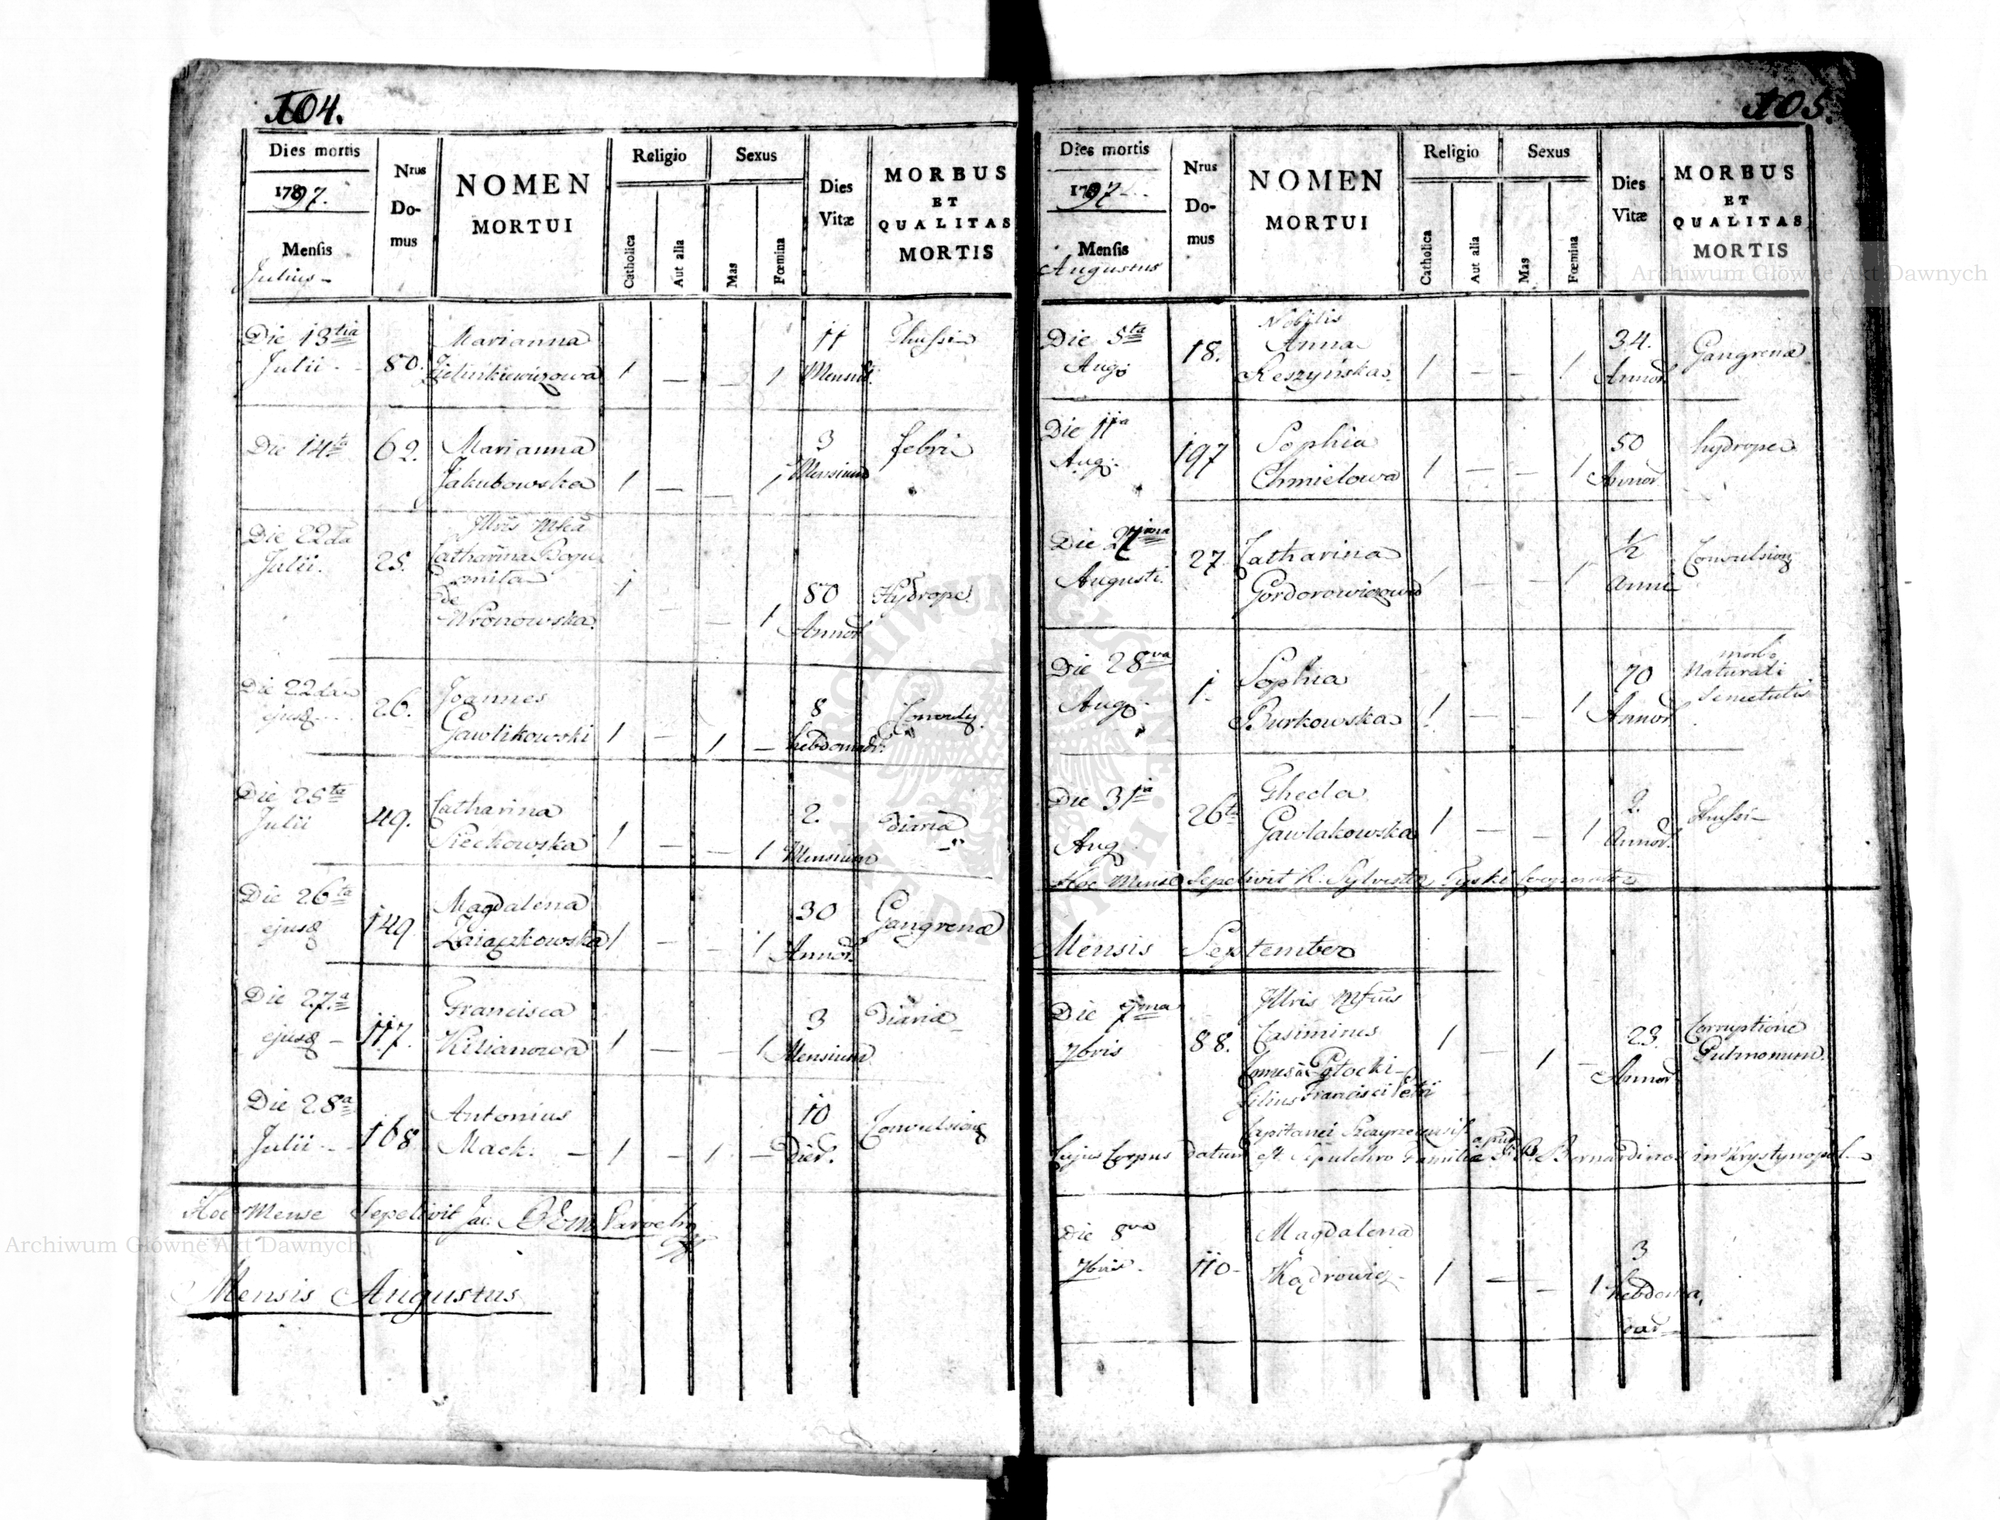 104.
Dies mortis
1797.
Mensis
Julius
Nrus Domus
NOMEN MORTUI
Religio
Catholica
Aut alia
Sexus
Mas
Fœmina
Dies Vitæ
MORBUS ET QUALITAS MORTIS
Die 13tia Julii 80. Marianna 1 — — 1 11 Mensiū Thussi
Die 14ta 62. Marianna Jakubowska 1 — — 1 3 Mensium febri
Die 22da Julii 25. Catharina
de Wronowska 1 — — 1 80 Annor. Hydrope
Die 22da ejusq 26. Joannes Gawlikowski 1 — 1 — 8 hebdomadr.
Die 25ta Julii 49. Catharina Piechowska 1 — — 1 2. Mensium Diaria
Die 26ta ejusq 149 Magdalena Zaiączkowska 1 — — 1 30 Annor. Gangrena
Die 27.a ejusq 117. Francisca Kilianowa 1 — — 1 3 Mensium Diaria
Die 28a Julii 168 Antonius Mack. 1 — 1 — 10 Dier. Convulsione
Hoc Mense Sepelivit Jac.
Mensis Augustus
105.
Dies mortis
1797
Mensis
Augustus
Nrus Domus
NOMEN MORTUI
Religio
Catholica
Aut alia
Sexus
Mas
Fœmina
Dies Vitæ
MORBUS ET QUALITAS MORTIS
Die 5ta Aug: 18. Nobilis Anna 1 — — 1 34. Annor. Gangrena
Die 11a Aug: 197 Sophia Chmielowa 1 — — 1 50 Annor. hydrope
Die 27ma Augusti 27. Catharina 1 — — 1 1/2 Anni Convulsion
Die 28va Aug 1. Sophia Burkowska 1 — — 1 70 Annor. morbo Naturali Senectutis
Die 31a Aug 26ta Thecla Gawlakowska 1 — — 1 2. Annor. Thussi
Hoc Mense Sepelivit R. Sylvester Cooperator
Mensis September
Die 7ma 7bris 88. Illris Mfcus Casimirus Comes a Potocki
filius Francisci 1 — 1 — 23. Annor. Corruptione Pulmonum.
Capitanei
Cujus Corpus datum est Sepulchro Familiæ apud Bernardinos in Krystynopol
Die 8va 7bris 110 Magdalena 1 — — 1 3 hebdomadar
Archiwum Główne Akt Dawnych
Archiwum Główne Akt Dawnych
ARCHIWUM GŁÓWNE AKT DAWNYCH